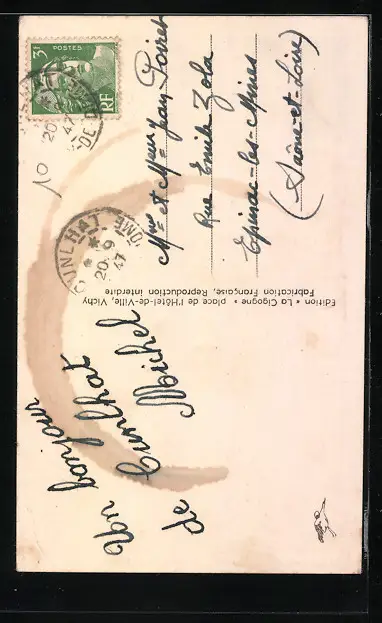 Un bonjour
de Cunlhat
Michel
Edition « La Cigogne » place de l'Hôtel-de-Ville, Vichy
Fabrication Française, Reproduction interdite
3F
POSTES
RF
20
47
-DE-DOME
CUNLHAT
* *
20-9
47
10
Mme et Mr Jean Poiret
Rue Emile Zola
Epinac-les-Mines
(Saône-et-Loire)